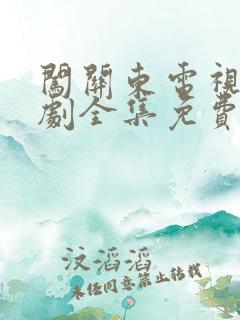 闖關東電視
劇全集免費
汶滔滔
未经同意禁止转载